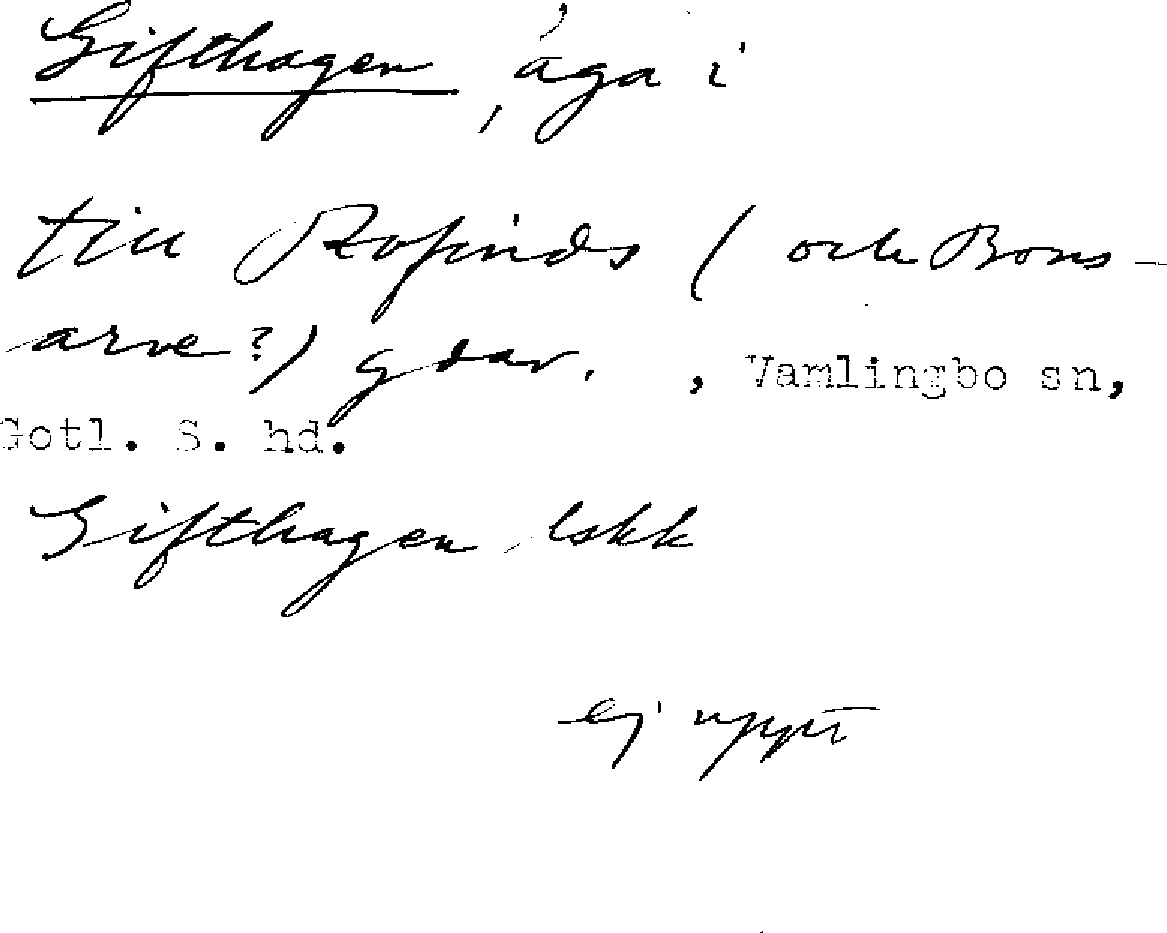 Gifthagen, äga i
till Rofinds (och Bons-
arve?) gdar. , Vamlingbo sn,
Gotl. S. hd.
Gifthagen lskk
ej uppt